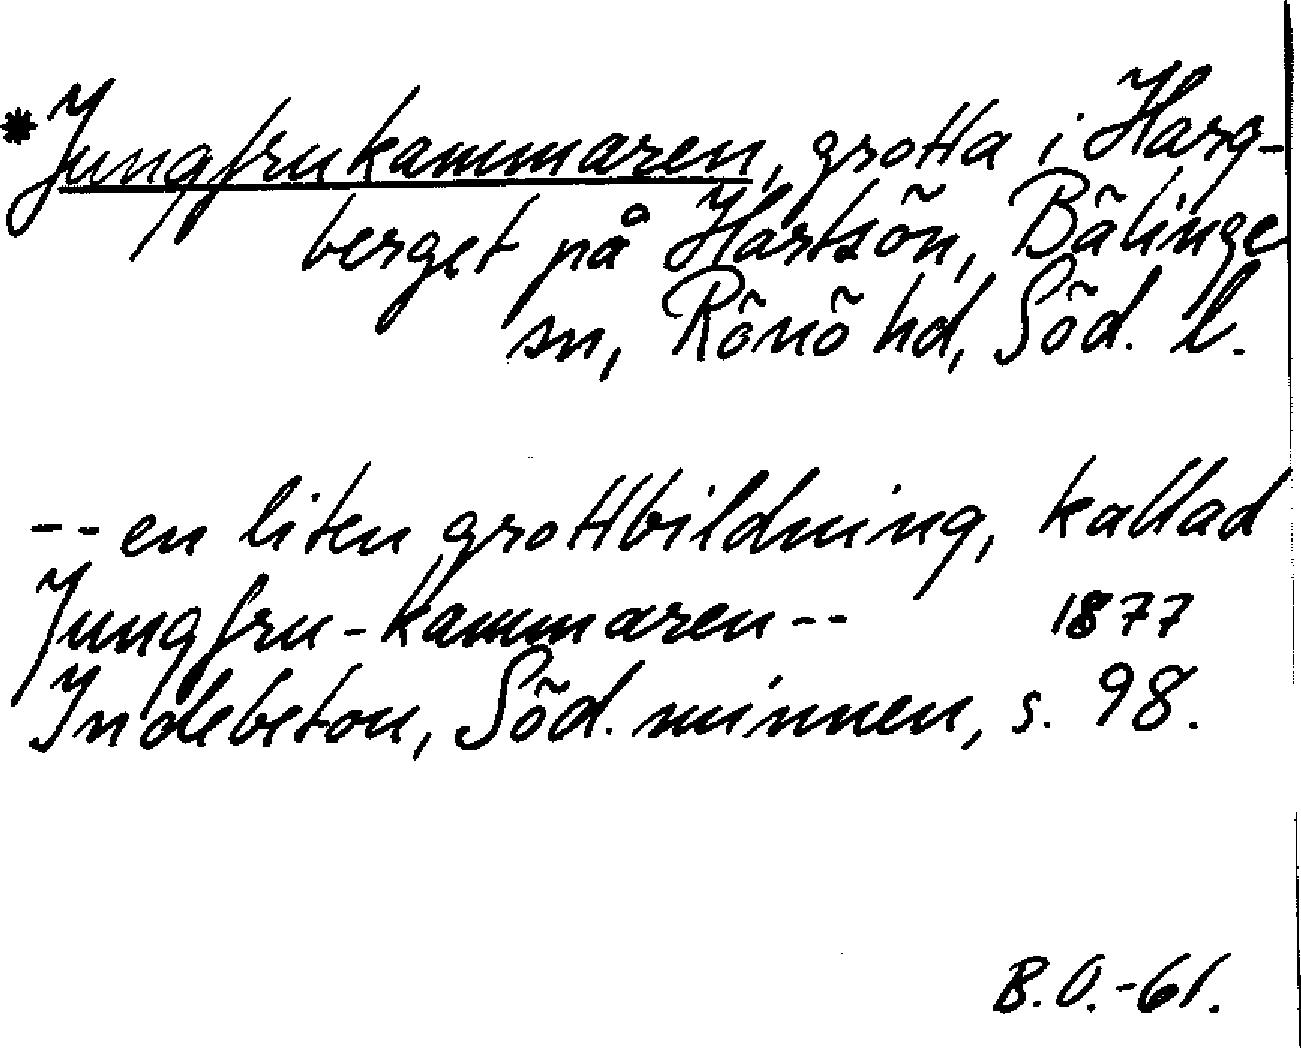 *Jungfrukammaren, grotta i Harg-
berget på Hartsön, Bälinge
sn, Rönö hd, Söd. l.
-- en liten grottbildning, kallad
Jungfru-kammaren -- 1877
Indebetou, Söd. minnen, s. 98.
B.O.-61.